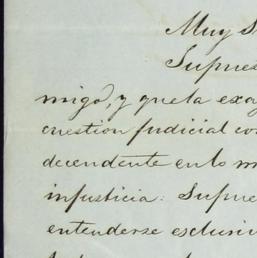 Muy S
Supues
migo, y que la exa
cuestion Judicial con
decendente en lo m
injusticia: Supue
entenderse esclusiv